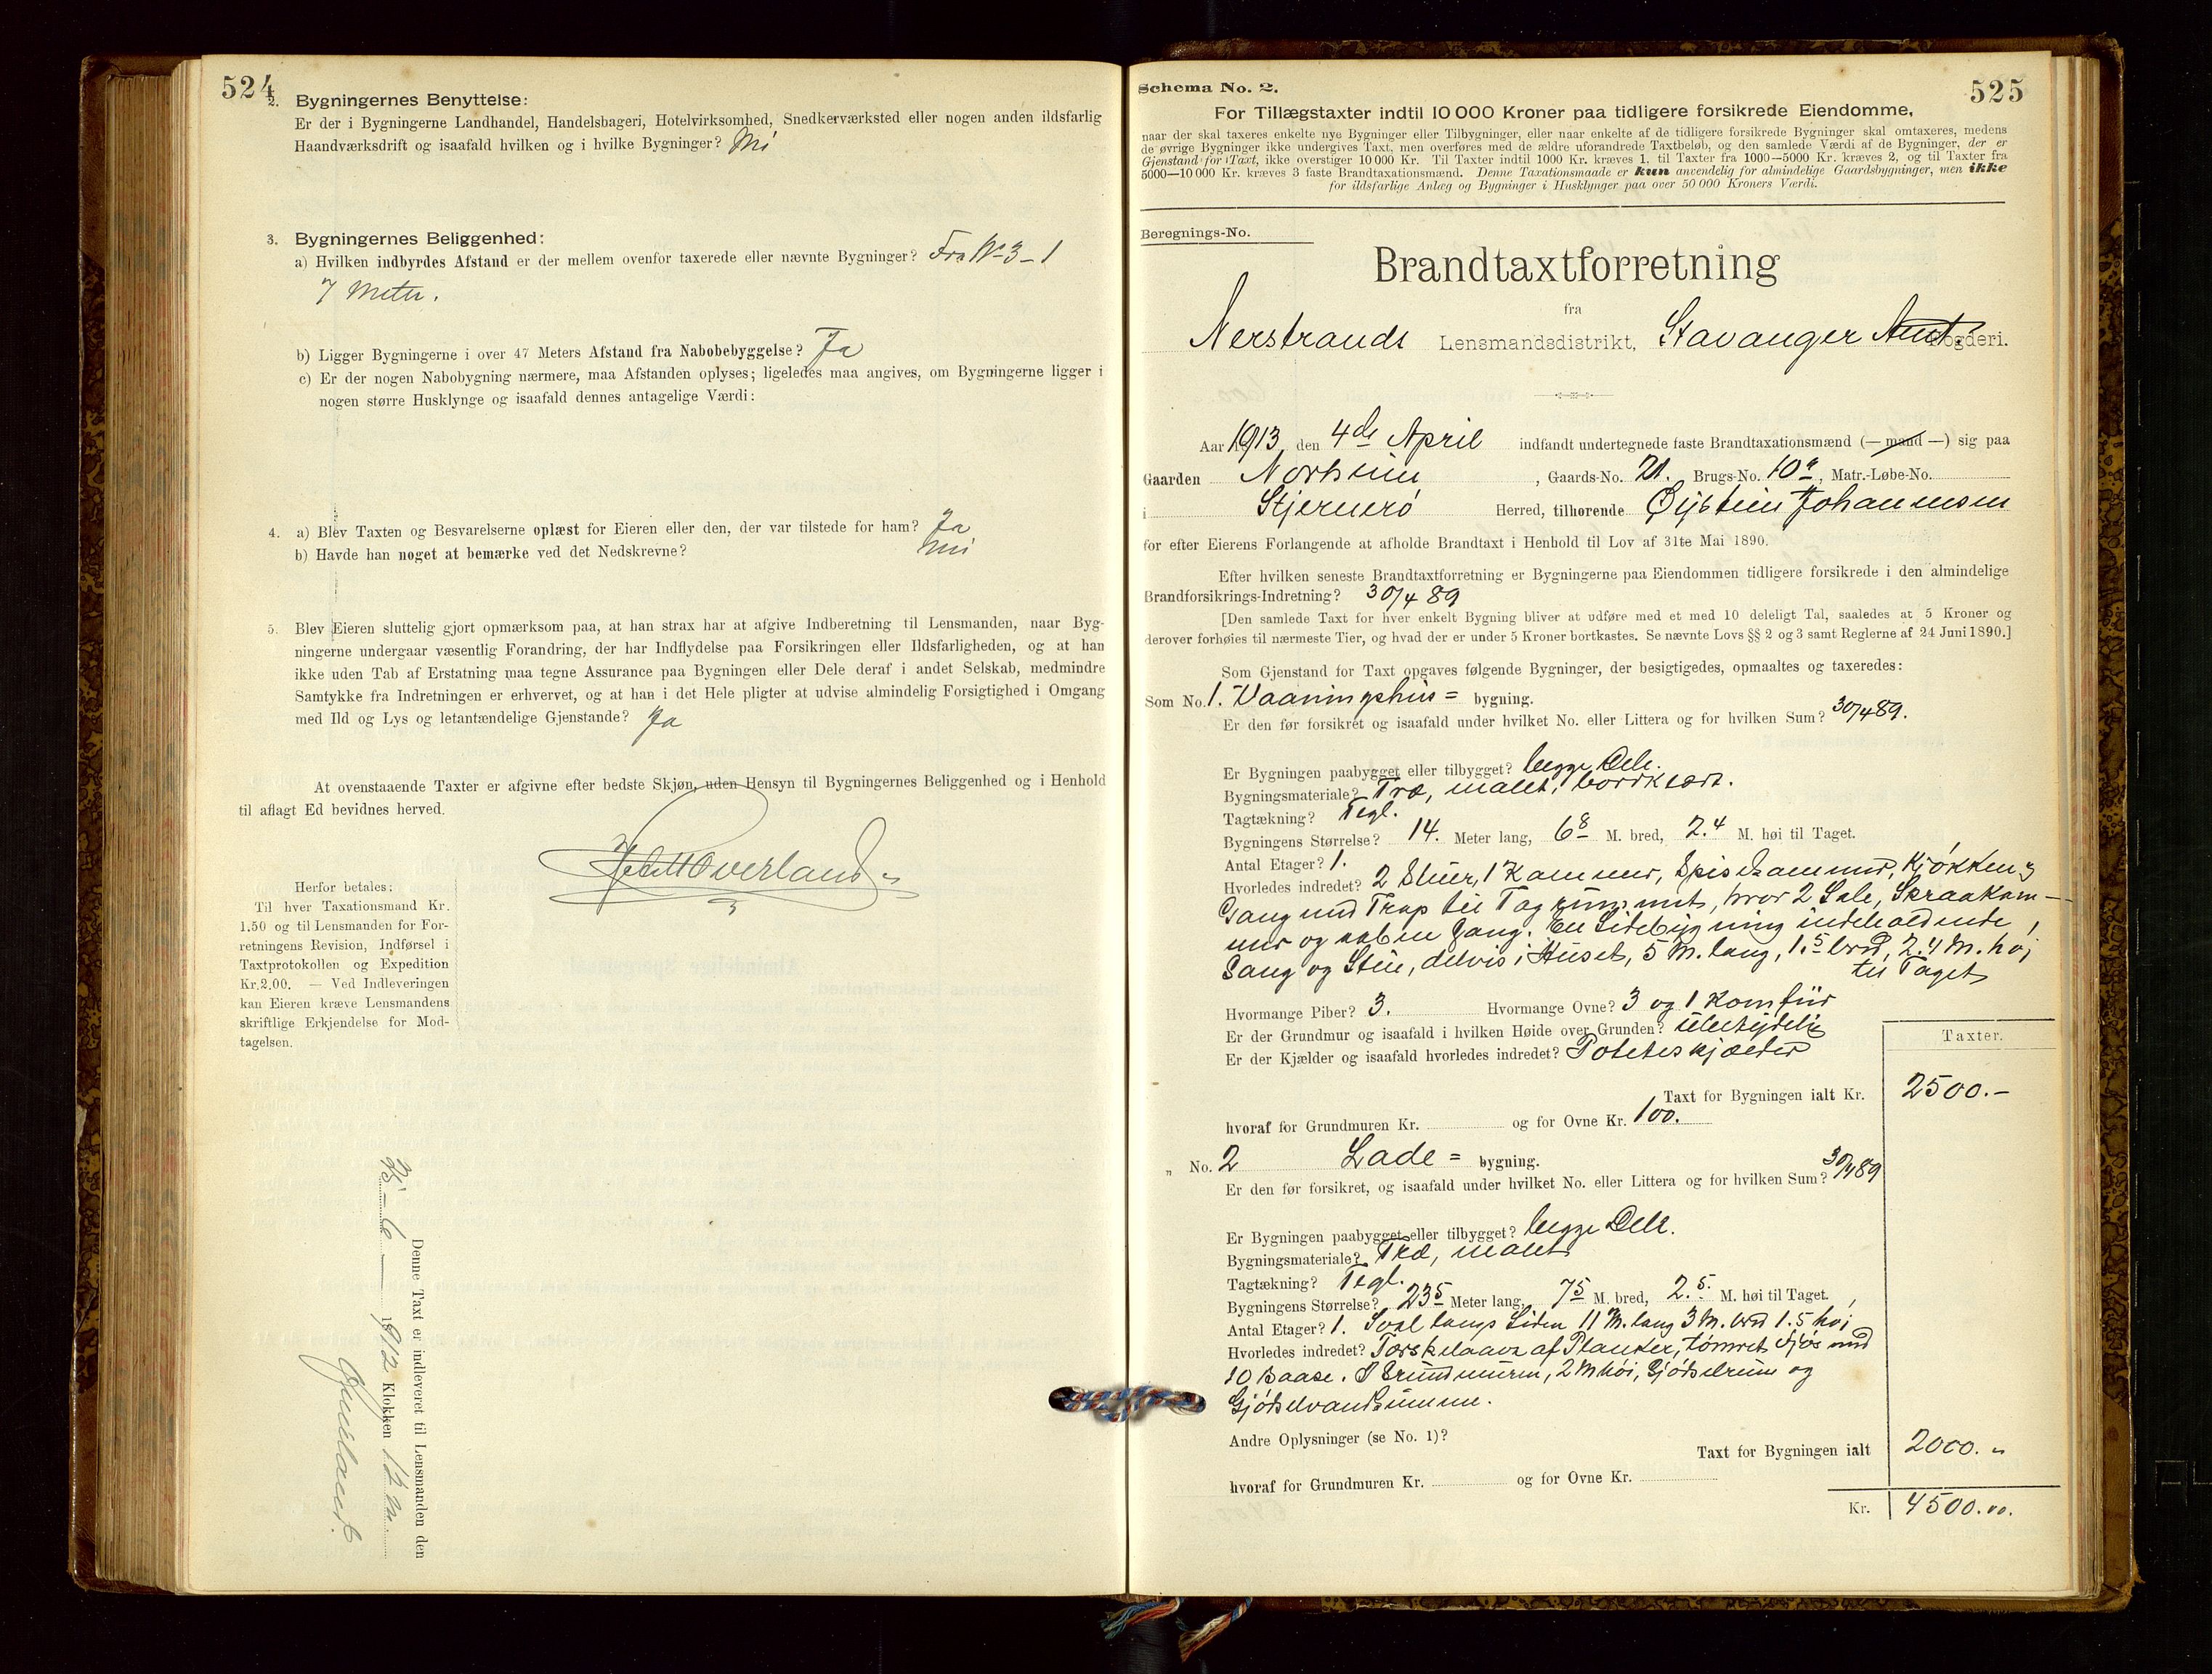 524
2. Bygningernes Benyttelse:
Er der i Bygningerne Landhandel, Handelsbageri, Hotelvirksomhed, Snedkerværksted eller nogen anden ildsfarlig
Haandværksdrift og isaafald hvilken og i hvilke Bygninger? Nei
3. Bygningernes Beliggenhed:
a) Hvilken indbyrdes Afstand er der mellem ovenfor taxerede eller nævnte Bygninger? Fra No 3 - 1
7 Meter.
b) Ligger Bygningerne i over 47 Meters Afstand fra Nabobebyggelse? Ja
c) Er der nogen Nabobygning nærmere, maa Afstanden oplyses; ligeledes maa angives, om Bygningerne ligger i
nogen større Husklynge og isaafald dennes antagelige Værdi:
4. a) Blev Taxten og Besvarelserne oplæst for Eieren eller den, der var tilstede for ham? Ja
b) Havde han noget at bemærke ved det Nedskrevne? Nei
5. Blev Eieren sluttelig gjort opmærksom paa, at han strax har at afgive Indberetning til Lensmanden, naar Byg-
ningerne undergaar væsentlig Forandring, der har Indflydelse paa Forsikringen eller Ildsfarligheden, og at han
ikke uden Tab af Erstatning maa tegne Assurance paa Bygningen eller Dele deraf i andet Selskab, medmindre
Samtykke fra Indretningen er erhvervet, og at han i det Hele pligter at udvise almindelig Forsigtighed i Omgang
med Ild og Lys og letantændelige Gjenstande? Ja
At ovenstaaende Taxter er afgivne efter bedste Skjøn, uden Hensyn til Bygningernes Beliggenhed og i Henhold
til aflagt Ed bevidnes herved.
Overland
Herfor betales:
Til hver Taxationsmand Kr.
1.50 og til Lensmanden for For-
retningens Revision, Indførsel i
Taxtprotokollen og Expedition
Kr.2.00. — Ved Indleveringen
kan Eieren kræve Lensmandens
skriftlige Erkjendelse for Mod-
tagelsen.
Denne Taxt er indleveret til Lensmanden den
25 - 6 — 1912 Klokken 12 m
525
Schema No. 2.
For Tillægstaxter indtil 10 000 Kroner paa tidligere forsikrede Eiendomme,
naar der skal taxeres enkelte nye Bygninger eller Tilbygninger, eller naar enkelte af de tidligere forsikrede Bygninger skal omtaxeres, medens
de øvrige Bygninger ikke undergives Taxt, men overføres med de ældre uforandrede Taxtbeløb, og den samlede Værdi af de Bygninger, der er
Gjenstand for Taxt, ikke overstiger 10 000 Kr. Til Taxter indtil 1000 Kr. kræves 1, til Taxter fra 1000—5000 Kr. kræves 2, og til Taxter fra
5000—10 000 Kr. kræves 3 faste Brandtaxationsmænd. Denne Taxationsmaade er kun anvendelig for almindelige Gaardsbygninger, men ikke
for ildsfarlige Anlæg og Bygninger i Husklynger paa over 50 000 Kroners Værdi.
Beregnings-No.
Brandtaxtforretning
fra
Nerstrands Lensmandsdistrikt, Stavanger Amt Fogderi.
Aar 1913, den 4de April indfandt undertegnede faste Brandtaxationsmænd (— mand —) sig paa
Gaarden Norheim, Gaards-No. 21. Brugs-No. 10a, Matr.-Løbe-No.
i Stjernerø Herred, tilhørende Øistein Johannesen
for efter Eierens Forlangende at afholde Brandtaxt i Henhold til Lov af 31te Mai 1890.
Efter hvilken seneste Brandtaxtforretning er Bygningerne paa Eiendommen tidligere forsikrede i den almindelige
Brandforsikrings-Indretning? 30/4 89
[Den samlede Taxt for hver enkelt Bygning bliver at udføre med et med 10 deleligt Tal, saaledes at 5 Kroner og
derover forhøies til nærmeste Tier, og hvad der er under 5 Kroner bortkastes. Se nævnte Lovs §§ 2 og 3 samt Reglerne af 24 Juni 1890.]
Som Gjenstand for Taxt opgaves følgende Bygninger, der besigtigedes, opmaaltes og taxeredes:
Som No. 1. Vaaningshus = bygning.
Er den før forsikret og isaafald under hvilket No. eller Littera og for hvilken Sum? 30/4 89.
Er Bygningen paabygget eller tilbygget? begge Dele.
Bygningsmateriale? Træ, malet, bordklædt.
Tagtækning? Tegl.
Bygningens Størrelse? 14. Meter lang, 6.8 M. bred, 2.4 M. høi til Taget.
Antal Etager? 1.
Hvorledes indredet? 2 Stuer, 1 Kammer, Spiskammer, Kjøkken og
Gang med Trap til Tagrummet, hvor 2 Sale, Skraakam-
mer og aaben Gang. En Sidebygning indeholdende
Gang og Stue, delvis i Huset, 5 M. lang, 1.5 bred, 2.4 M. høi
til Taget
Hvormange Piber? 3. Hvormange Ovne? 3 og 1 Komfur
Er der Grundmur og isaafald i hvilken Høide over Grunden? ubetydelig
Er der Kjælder og isaafald hvorledes indredet? Poteteskjælder
Taxter.
Taxt for Bygningen ialt Kr. 2500.-
hvoraf for Grundmuren Kr. og for Ovne Kr. 100.
„ No. 2 Lade = bygning.
Er den før forsikret, og isaafald under hvilket No. eller Littera og for hvilken Sum? 30/4 89
Er Bygningen paabygget eller tilbygget? begge Dele.
Bygningsmateriale? Træ, malet
Tagtækning? Tegl.
Bygningens Størrelse? 23.5 Meter lang, 7.5 M. bred, 2.5. M. høi til Taget.
Antal Etager? 1. Sval langs Siden 11 M. lang 3 M. bred 1.5 høi
Hvorledes indredet? Torskelaave af Planker, tømret Fjøs med
10 Baase. I Grundmuren, 2 M høi, Gjødselrum og
Gjødselvandkumme.
Andre Oplysninger (se No. 1)?
Taxt for Bygningen ialt 2000. "
hvoraf for Grundmuren Kr. og for Ovne Kr.
Kr. 4500.00.